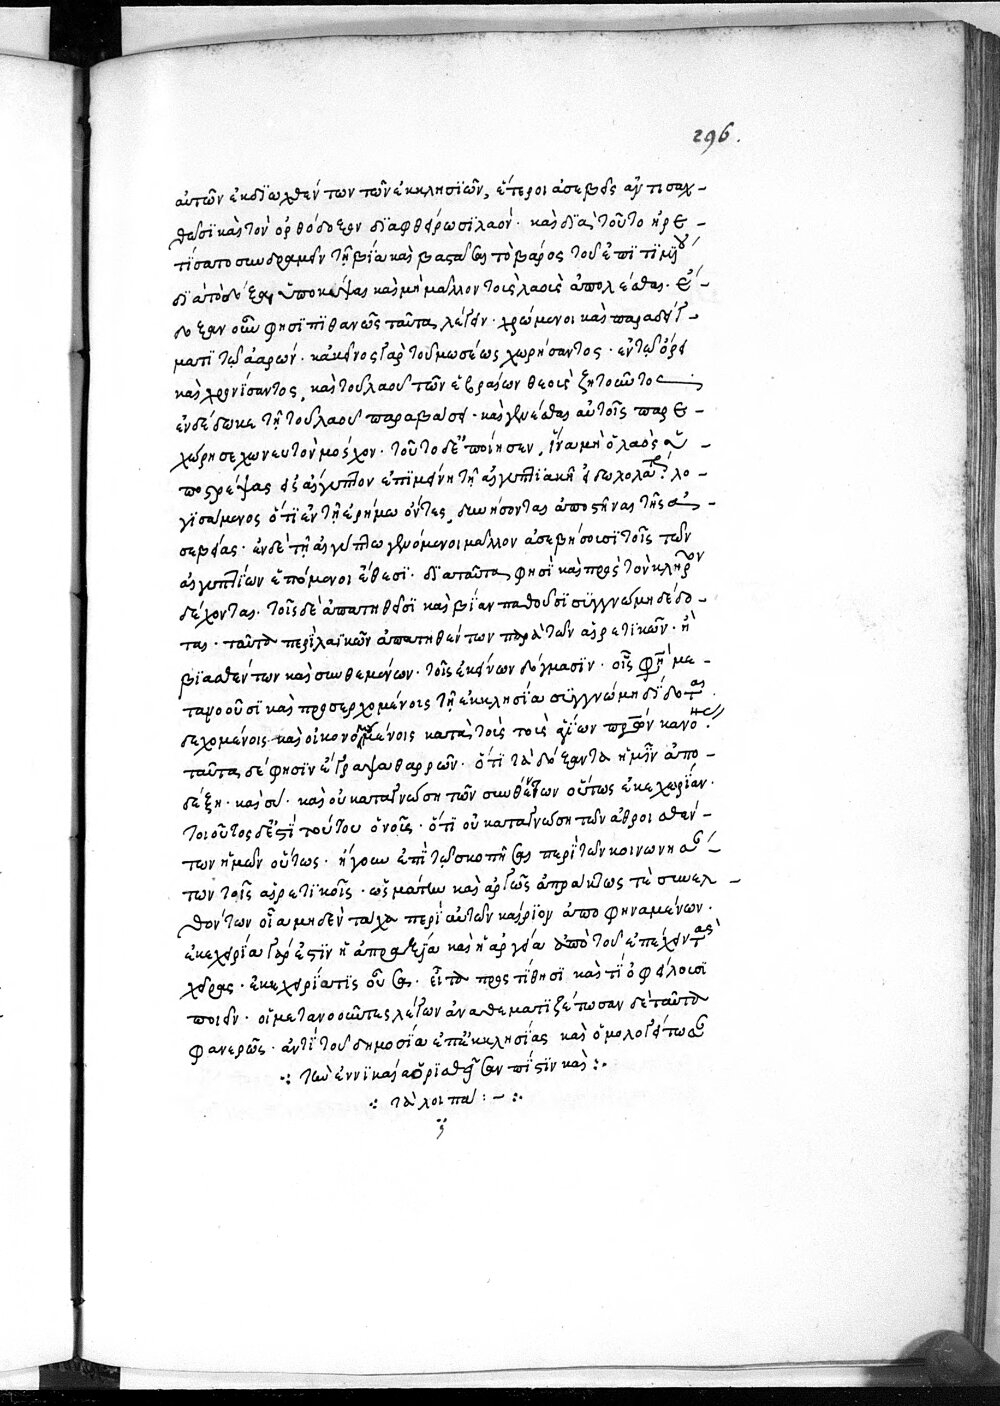 296.
αὐτῶν ἐκδϊωχθέντων τῶν ἐκκλησϊῶν, ἕτεροι ἀσεβεῖς ἀντισαχ-
θῶσϊ καὶ τὸν ὀρθόδοξον δϊαφθείρωσϊ λαόν· καὶ δϊὰ τοῦτο ἡρε-
τίσατο συνδραμεῖν τῆ βία καὶ βαστάσαι τὸ βάρος τοῦ ἐπϊτϊμίου
δϊαπὸ ὑποκύψας καὶ μὴ μᾶλλον τοὺς λαοὺς ἀπολέσθαι·
δοξαν οὖν φησὶ πϊθανῶς ταῦτα λέγειν· χρώμενοι καὶ παραδείγ-
ματϊ τῶ ἀαρών· κἀκεῖνος γὰρ τοῦ μωσέως χωρήσαντος· ἐν τῶ ὄρει
καὶ χρονίσαντος, καὶ τοῦ λαοῦ τῶν ἑβραίων θεοὺς ζητοῦντος
ἐνδέδωκε τῆ τοῦ λαοῦ παραβάσει· καὶ γενέσθαι αὐτοῖς παρε-
χώρησε χωνευτὸν μόσχον· τοῦτο δὲ ἐποίησεν, ἵνα μὴ ὁ λαὸς ὑ-
ποστρέψας εἰς αἴγυπτον ἐπϊμείνη τῆ αἰγυπτϊακῆ εἰδωλολατρ λο-
γϊσάμενος ὅτϊ ἐν τῆ ἐρήμω ὄντες, δυνήσονται ἀποστῆναι τῆς ἀ-
σεβείας· ἐν δὲ τῆ αἰγύπτω γενόμενοι μᾶλλον ἀσεβήσουσϊ τοῖς τῶν
αἰγυπτϊων ἑπόμενοι ἔθεσϊ· δϊὰ ταῦτα φησὶ καὶ πρὸς τὸν κλῆρον
δέχονται· τοῖς δὲ ἀπατηθεῖσϊ καὶ βίαν παθοῦσϊ σϋγγνώμη δέδο-
ται· ταῦτα περὶ λαϊκῶν ἀπατηθέντων παρὰ τῶν αἱρετϊκῶν· ἢ
βϊασθέντων καὶ συνθεμένων· τοῖς ἐκείνων δόγμασϊν· οἷς φησὶ με-
τανοοῦσϊ καὶ προσερχομένοις τῆ ἐκκλησία σϋγγνώμη δίδοται.
δεχομένοις καὶ οἰκονομουμένοις κατὰ τοὺς τοὺς ἁγίων πρων κανόνας
ταῦτα δέ φησϊν ἔγραψα θαρρῶν· ὅτϊ τὰ δόξαντα ἡμῖν ἀπο-
δέξη· καὶ σὺ· καὶ οὐ καταγνώση τῶν συνθέντων οὕτως ἐκεχειρίαν·
τοιοῦτος δέ ἐστϊ τούτου ὁ νοῦς· ὅτϊ οὐ καταγνώση τῶν ἀθροισθέν-
των ἡμῶν οὕτως· ἤγουν ἐπὶ τῶ σκοπῆσαι περὶ τῶν κοινωνησάν-
των τοῖς αἱρετϊκοῖς· ὡς μάτην καὶ ἀργῶς ἀπράκτως τὲ συνελ-
θόντων οἷα μηδὲν τάχα περὶ αὐτῶν καίρϊον ἀποφηναμένων·
ἐκεχειρία γάρ ἐστϊν ἡ ἀπραξία καὶ ἡ ἀργία ἀπὸ τοῦ ἐπέχειν τὰς
χεῖρας· ἐκεχειρία τὶς οὖσα· εἶτα προστϊθησϊ καὶ τί ὀφείλουσϊ
ποιεῖν· οἱ μετανοοῦντες λέγων ἀναθεματϊζέτωσαν δὲ ταῦτα
φανερῶς· ἀντϊ τοῦ δημοσία ἐπ' ἐκκλησίας καὶ ὁμολογείτωσαν
·: τὴν ἐν νϊκαία ὁρϊσθεῖσαν πίστϊν καὶ :·
·: τὰ λοιπά : — :·